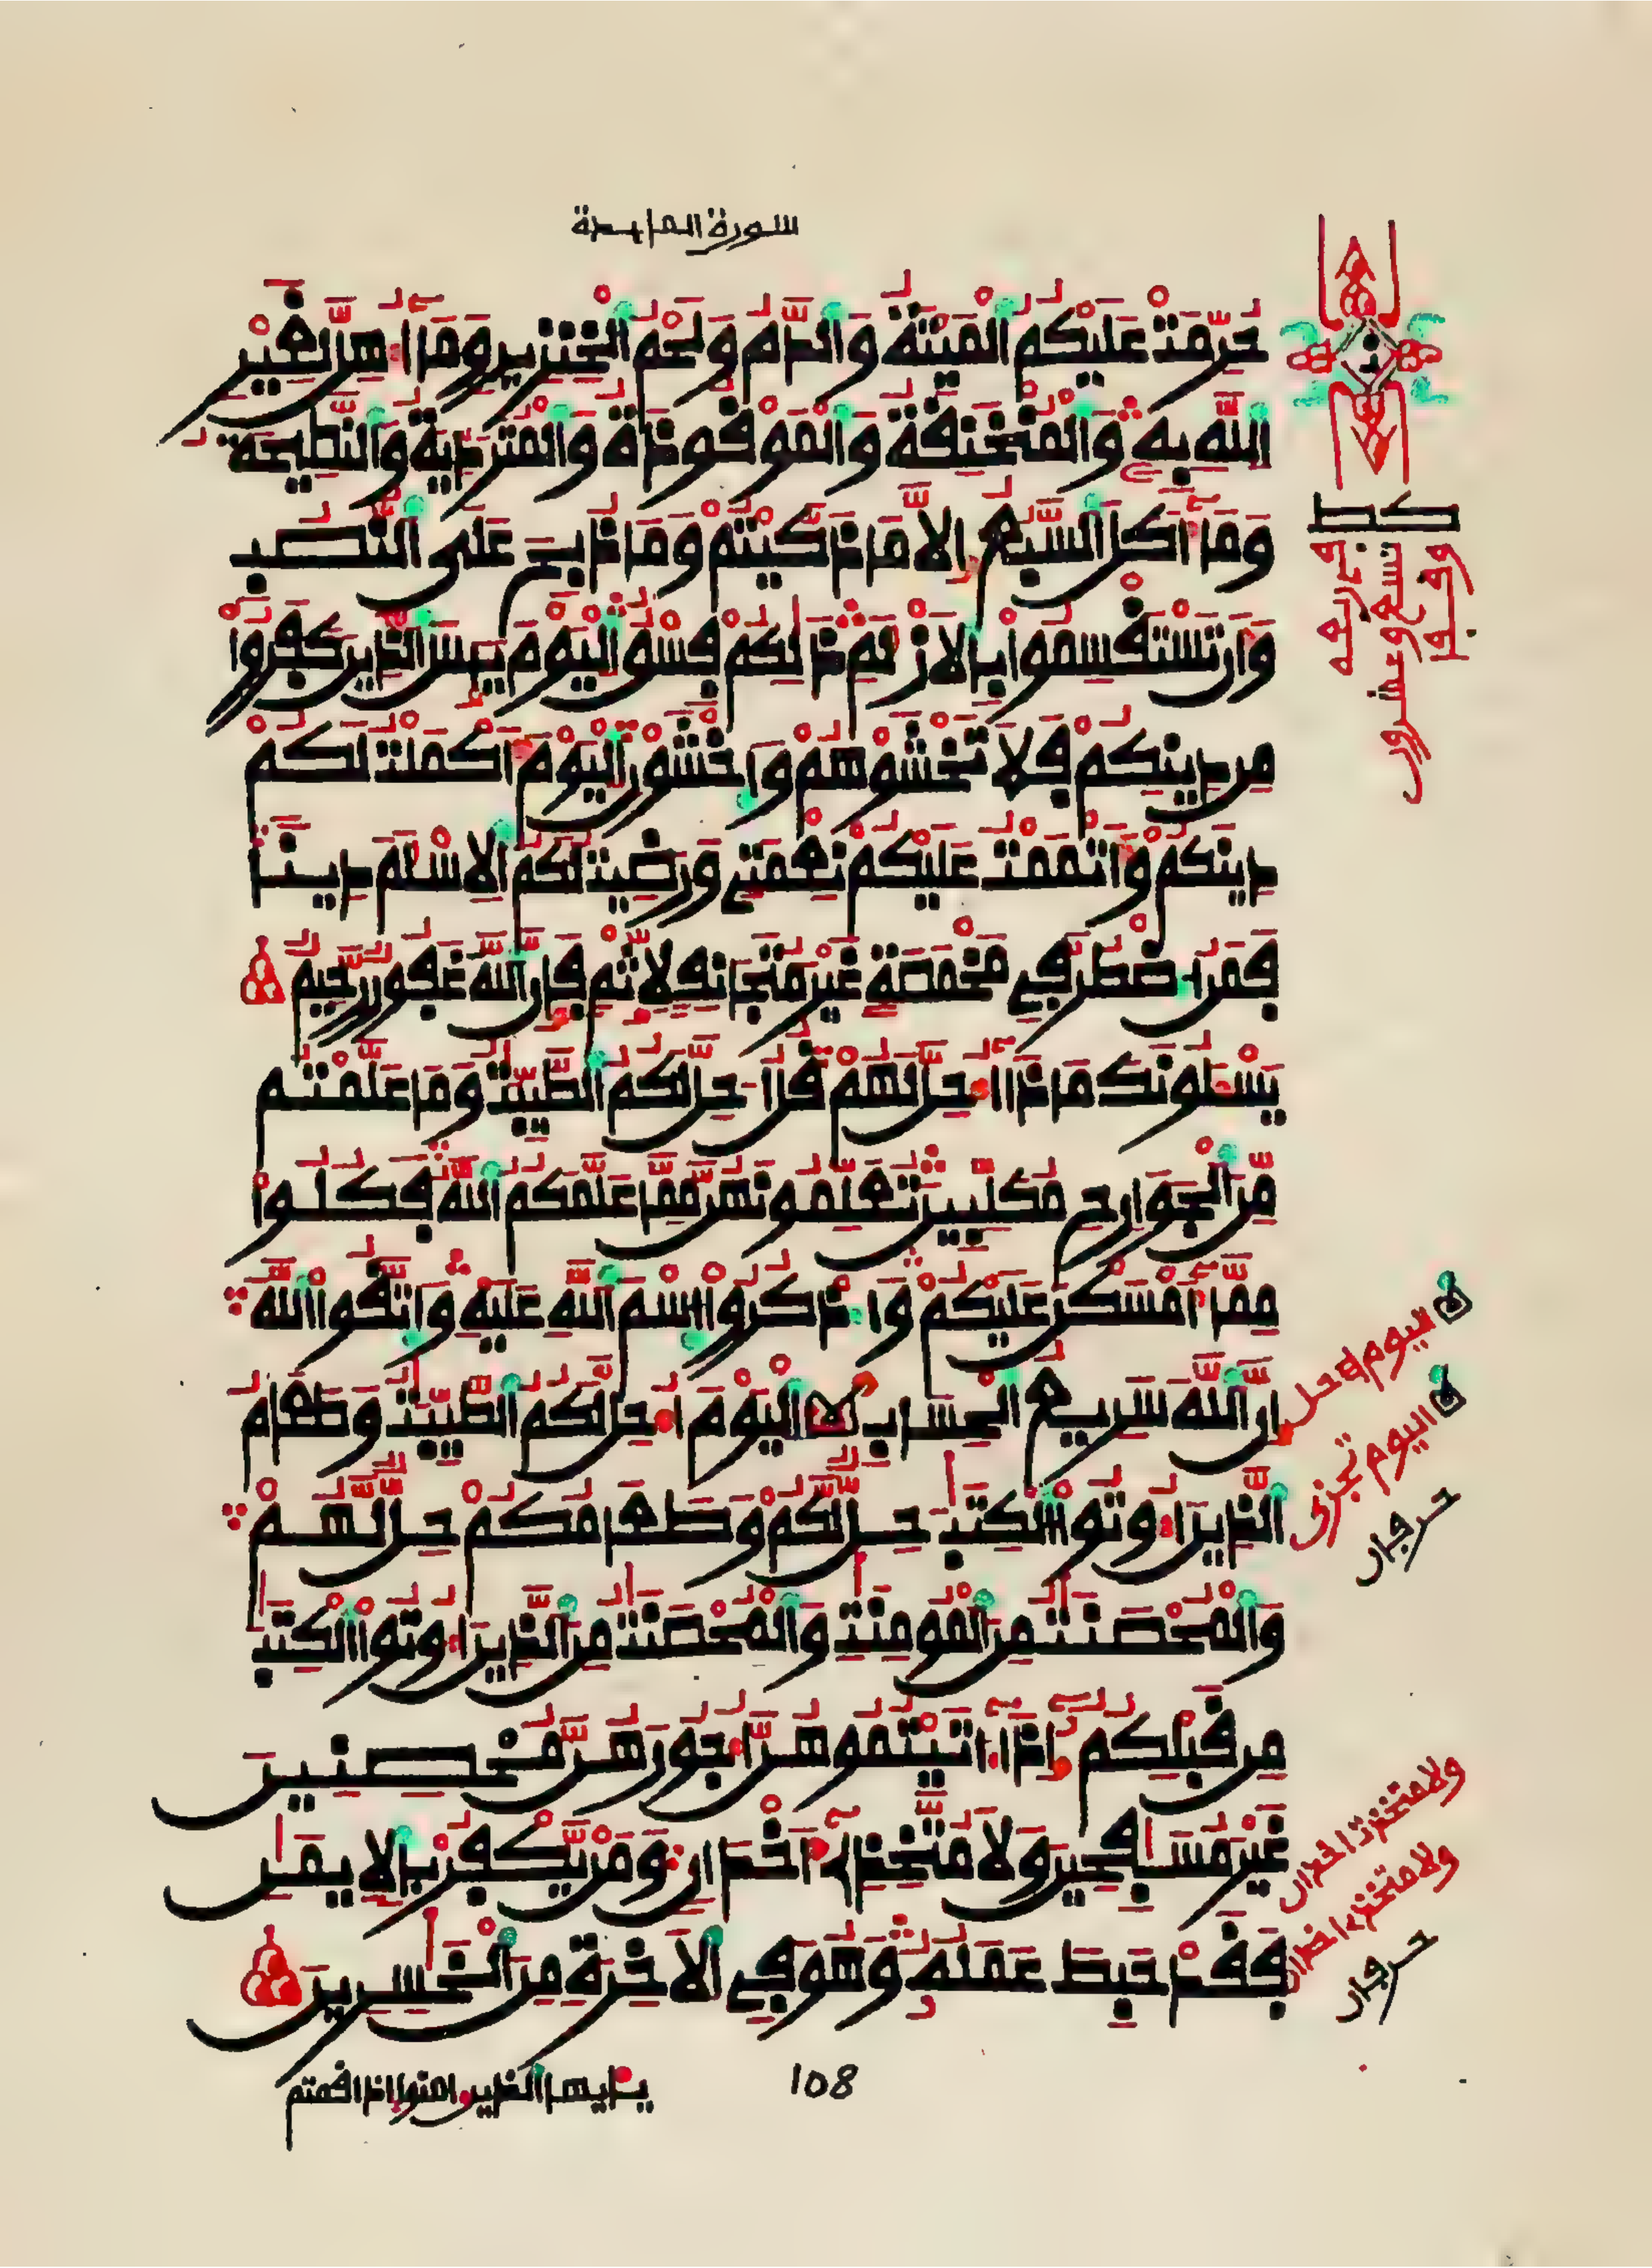 سورة المايدة
حُرِّمَتْ عَلَيْكُمُ الْمَيْتَةُ وَالدَّمُ وَلَحْمُ الْخِنزِيرِ وَمَا أُهِلَّ لِغَيْرِ
اللَّهِ بِهِ وَالْمُنْخَنِقَةُ وَالْمَوْقُوذَةُ وَالْمُتَرَدِّيَةُ وَالنَّطِيحَةُ
وَمَا أَكَلَ السَّبُعُ إِلَّا مَا ذَكَّيْتُمْ وَمَا ذُبِحَ عَلَى النُّصُبِ
وَأَن تَسْتَقْسِمُوا بِالْأَزْلَمِ ذَلِكُمْ فِسْقٌ الْيَوْمَ يَئِسَ الَّذِينَ كَفَرُوا
مِن دِينِكُمْ فَلَا تَخْشَوْهُمْ وَاخْشَوْنِ الْيَوْمَ أَكْمَلْتُ لَكُمْ
دِينَكُمْ وَأَتْمَمْتُ عَلَيْكُمْ نِعْمَتِي وَرَضِيتُ لَكُمُ الْإِسْلَمَ دِينًا
فَمَنُ اضْطُرَّ فِي مَخْمَصَةٍ غَيْرَ مُتَجَانِفٍ لِإِثْمٍ فَإِنَّ اللَّهَ غَفُورٌ رَّحِيمٌ
يَسْـَٔلُونَكَ مَاذَا أُحِلَّ لَهُمْ قُلْ أُحِلَّ لَكُمُ الطَّيِّبَتُ وَمَا عَلَّمْتُم
مِّنَ الْجَوَارِحِ مُكَلِّبِينَ تُعَلِّمُونَهُنَّ مِمَّا عَلَّمَكُمُ اللَّهُ فَكُلُوا
مِمَّا أَمْسَكْنَ عَلَيْكُمْ وَاذْكُرُوا اسْمَ اللَّهِ عَلَيْهِ وَاتَّقُوا اللَّهَ
إِنَّ اللَّهَ سَرِيعُ الْحِسَابِ الْيَوْمَ أُحِلَّ لَكُمُ الطَّيِّبَتُ وَطَعَامُ
الَّذِينَ أُوتُوا الْكِتَبَ حِلٌّ لَّكُمْ وَطَعَامُكُمْ حِلٌّ لَّهُمْ
وَالْمُحْصَنَتُ مِنَ الْمُومِنَتِ وَالْمُحْصَنَتُ مِنَ الَّذِينَ أُوتُوا الْكِتَبَ
مِن قَبْلِكُمْ إِذَا ءَاتَيْتُمُوهُنَّ أُجُورَهُنَّ مُحْصِنِينَ
غَيْرَ مُسَافِحِينَ وَلَا مُتَّخِذِي أَخْدَانٍ وَمَن يَكْفُرْ بِالْإِيمَنِ
فَقَدْ حَبِطَ عَمَلُهُ وَهُوَ فِي الْآخِرَةِ مِنَ الْخَسِرِينَ
108
يأيها الذين امنوا إذا قمتم
ن
تسع وعشرون
اليوم احل
اليوم تجزى
حرفان
ولا متخذت اخدان
ولا متخذے اخدان
حرفان